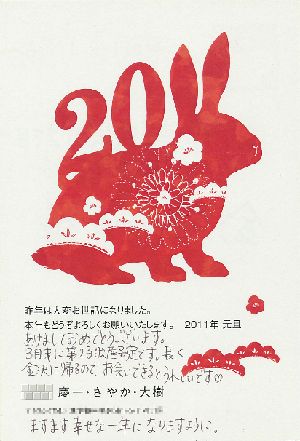 2011
昨年は大変お世話になりました。
本年もどうぞよろしくお願いいたします。 2011年 元旦
あけましておめでとうございます。
3月末に第2子出産予定です。長く
金沢に帰るので、お会いできるとうれしいです♡
慶一・さやか・大樹
ますます幸せな一年になりますように。